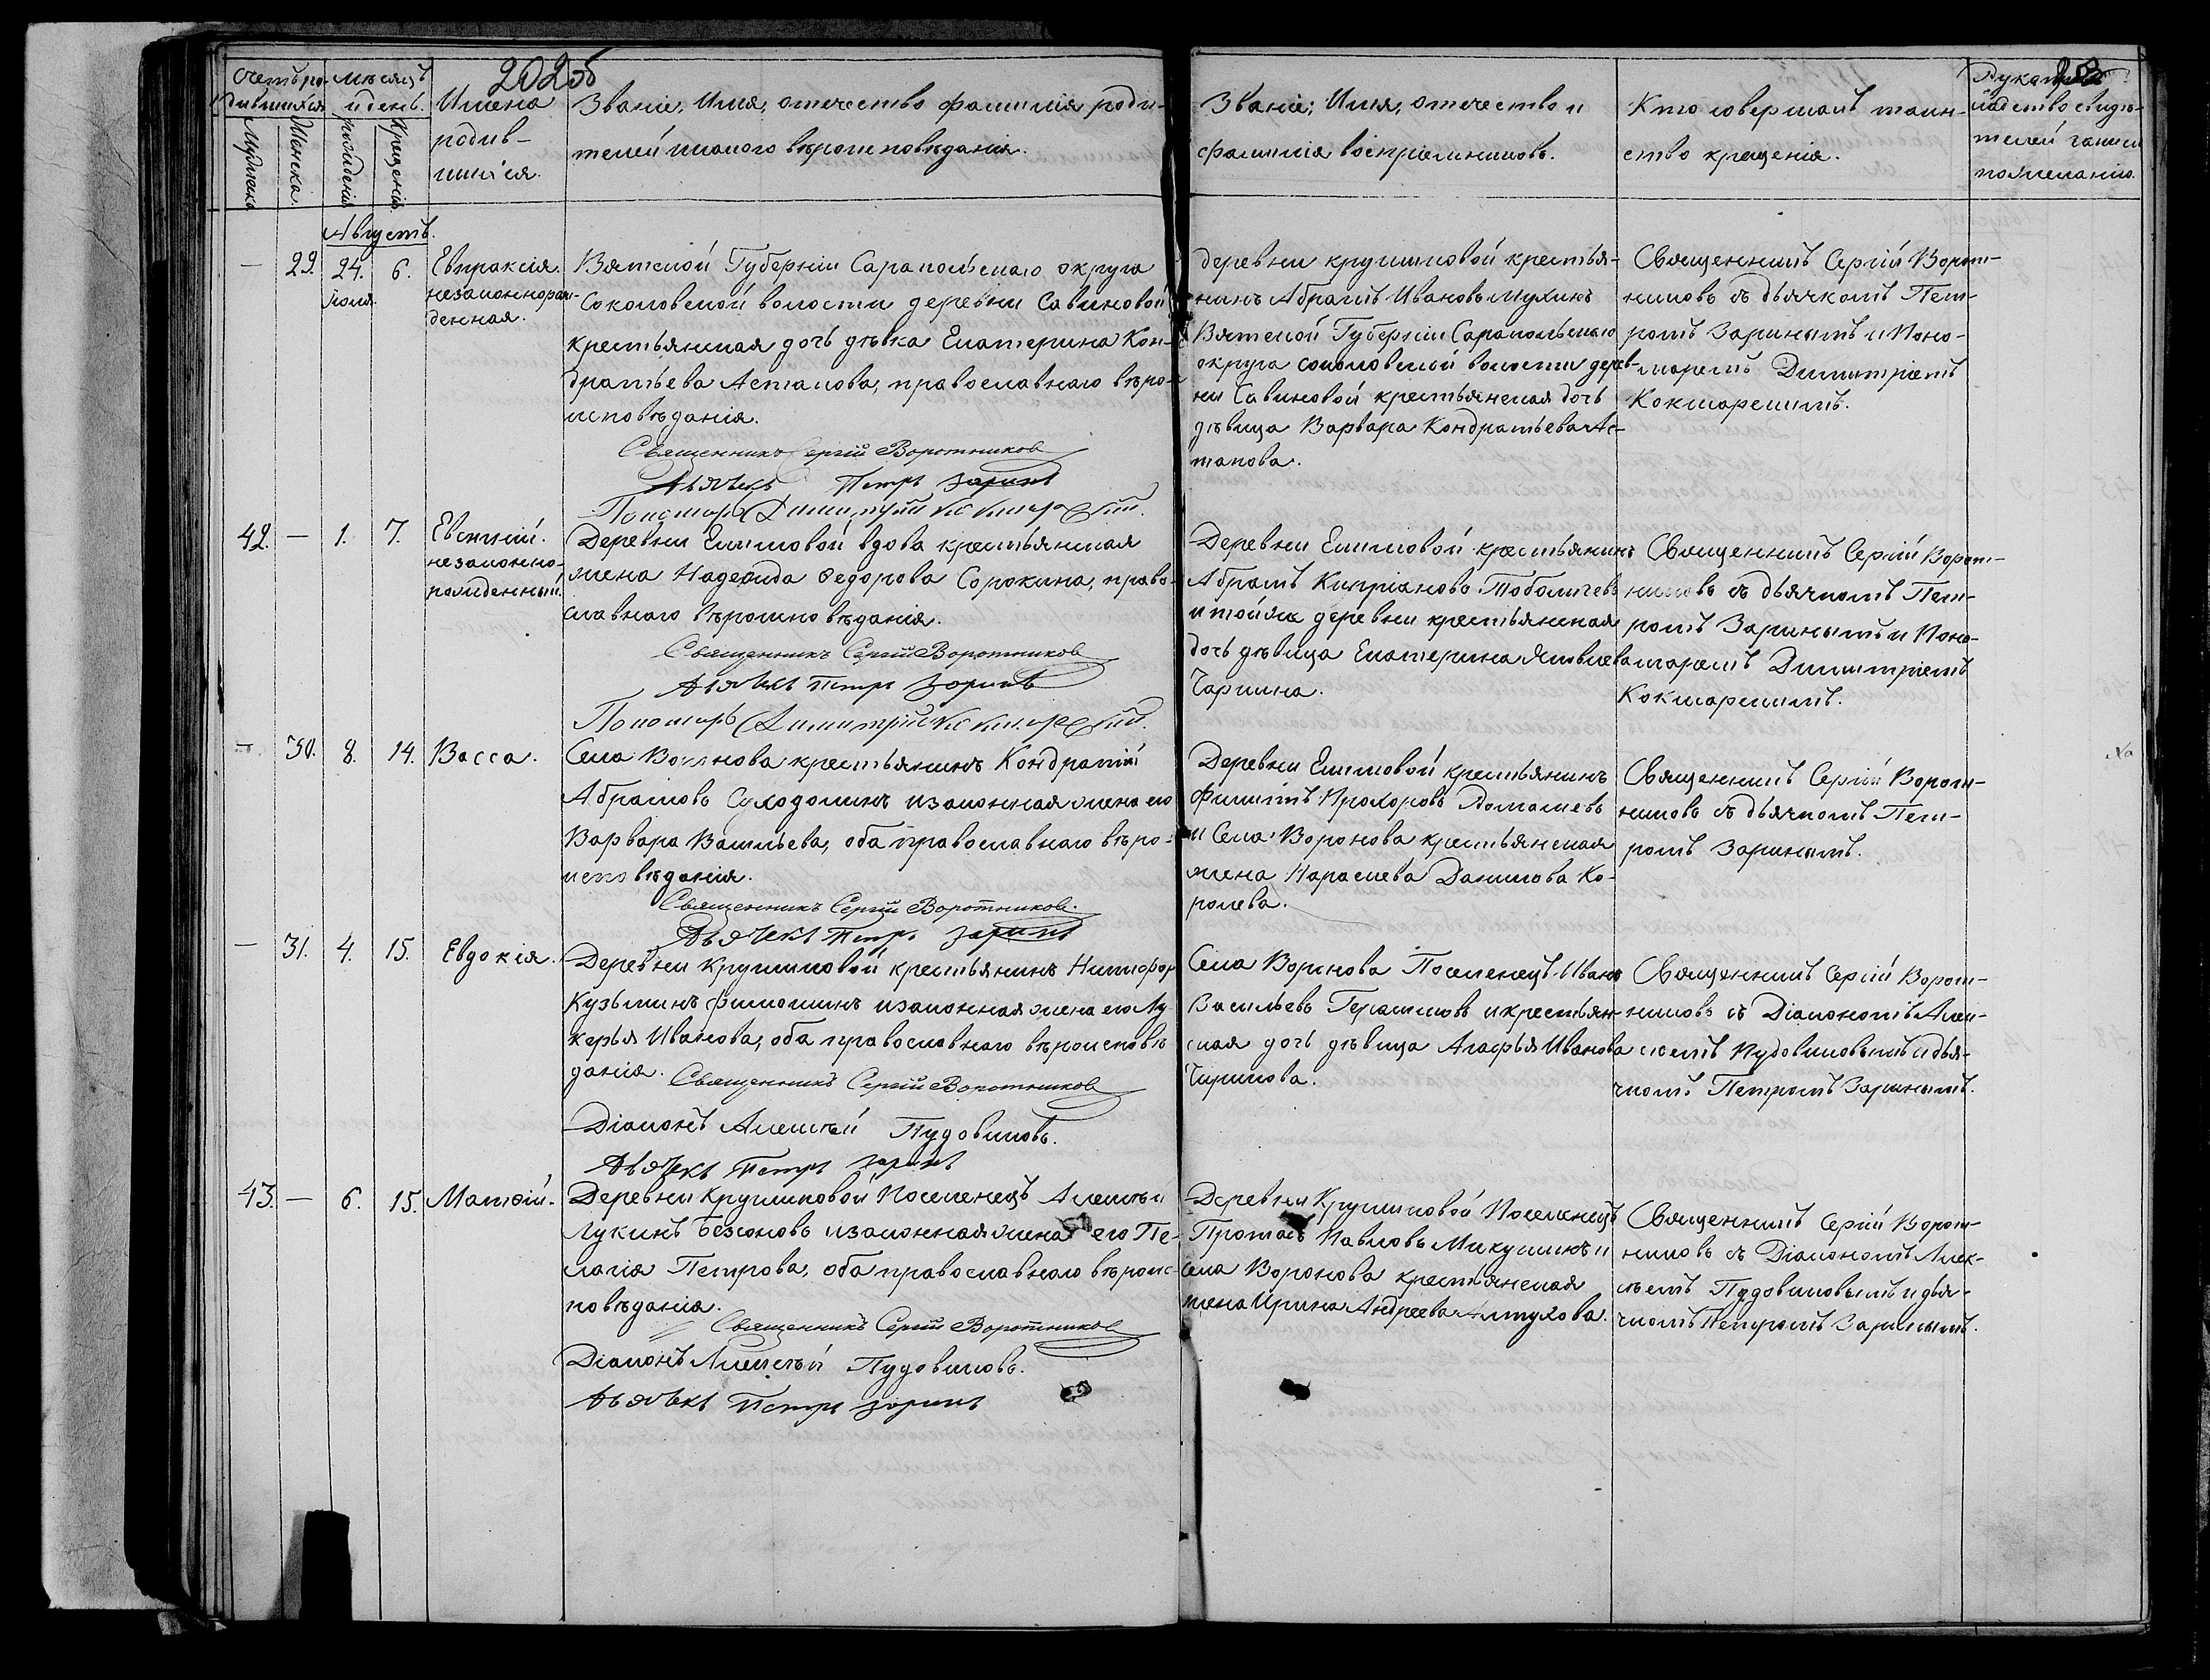 202об
203
Счетъ ро-
дившихся
Мужеска
Женска
Мѣсяцъ
и день.
рожденія
крещенія
Имена
родив-
шихся.
Званіе, Имя, отечество фамилія роди-
телей и какого вѣроисповѣданія.
Званіе, Имя, отечество и
фамилія воспріемниковъ.
Кто совершалъ таин-
ство крещенія.
Рукопри-
кладство свидѣ-
телей записи
по желанію.
Августъ.
— 29. 24. 6.
Іюля.
Евпраксія.
незаконнорож-
денная.
Вятской Губерніи Сарапольскаго округа
Соколовской волости деревни Савиновой
крестьянская дочь дѣвка Екатерина Кон-
дратьева Астапова, православнаго вѣро-
исповѣданія.
Священникъ Сергій Воротниковъ
Дьячекъ Петръ Заринъ
Пономарь Димитрій Кокшарскій.
деревни крушиновой крестья-
нинъ Абрамъ Ивановъ Мухинъ
Вятской Губерніи Сарапольскаго
округа соколовской волости дерев-
ни Савиновой крестьянская дочь
дѣвица Варвара Кондратьева Ас-
тапова.
Священникъ Сергій Ворот-
никовъ съ дьячкомъ Пет-
ромъ Заринымъ и Поно-
маремъ Димитріемъ
Кокшарскимъ.
42. — 1. 7.
Евсигній.
незаконно-
рожденный.
Деревни Еликовой вдова крестьянская
жена Надежда Федорова Сорокина, право-
славнаго вѣроисповѣданія.
Священникъ Сергій Воротниковъ
Дьячекъ Петръ Заринъ
Пономарь Димитрій Кокшарскій.
Деревни Еликовой крестьянинъ
Абрамъ Кипріановъ Тоболжевъ
и той же деревни крестьянская
дочь дѣвица Екатерина Яковлева
Священникъ Сергій Ворот-
никовъ съ дьячкомъ Пет-
ромъ Заринымъ и Поно-
маремъ Димитріемъ
Кокшарскимъ.
— 30. 8. 14.
Васса.
Села Воронова крестьянинъ Кондратій
Абрамовъ Суходолинъ и законная жена его
Варвара Васильева, оба православнаго вѣро-
исповѣданія.
Священникъ Сергій Воротниковъ.
Дьячекъ Петръ Заринъ
Деревни Еликовой крестьянинъ
Филипъ Прохоровъ Ломашевъ
и Села Воронова крестьянская
жена Параскева Данилова Ко-
ролева.
Священникъ Сергій Ворот-
никовъ съ дьячкомъ Пет-
ромъ Заринымъ.
— 31. 4. 15.
Евдокія.
Деревни Крушиновой крестьянинъ Никифоръ
Кузьминъ Филошинъ и законная жена его Лу-
керья Иванова, оба православнаго вѣроисповѣ-
данія.
Священникъ Сергій Воротниковъ
Діаконъ Алексѣй Пудовиковъ.
Дьячекъ Петръ Заринъ
Села Воронова Поселенецъ Иванъ
Васильевъ Герасимовъ и крестьян-
ская дочь дѣвица Агафья Иванова
Чирикова.
Священникъ Сергій Ворот-
никовъ съ Діакономъ Алек-
сѣемъ Пудовиковымъ и дья-
чкомъ Петромъ Заринымъ.
43. — 6. 15.
Матѳій.
Деревни Крушиновой Поселенецъ Алексѣй
Лукинъ Безсоновъ и законная жена его Пе-
лагія Петрова, оба православнаго вѣроис-
повѣданія.
Священникъ Сергій Воротниковъ
Діаконъ Алексѣй Пудовиковъ.
Дьячекъ Петръ Заринъ
Деревни Крушиновой Поселенецъ
Протасъ Павловъ Микушинъ и
Села Воронова крестьянская
жена Ирина Андреева Алтухова.
Священникъ Сергій Ворот-
никовъ съ Діакономъ Алек-
сѣемъ Пудовиковымъ и дья-
чкомъ Петромъ Заринымъ.